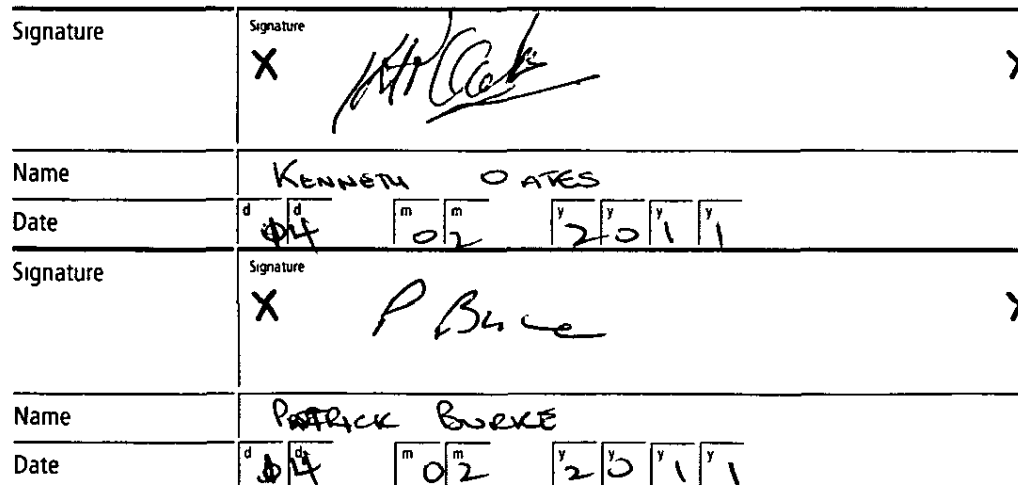 Signature Signature
X X
Name KENNETH OATES
Date d d m m y y y y
04 02 2011
Signature Signature
X P Burke X
Name PATRICK BURKE
Date d d m m y y y y
04 02 2011